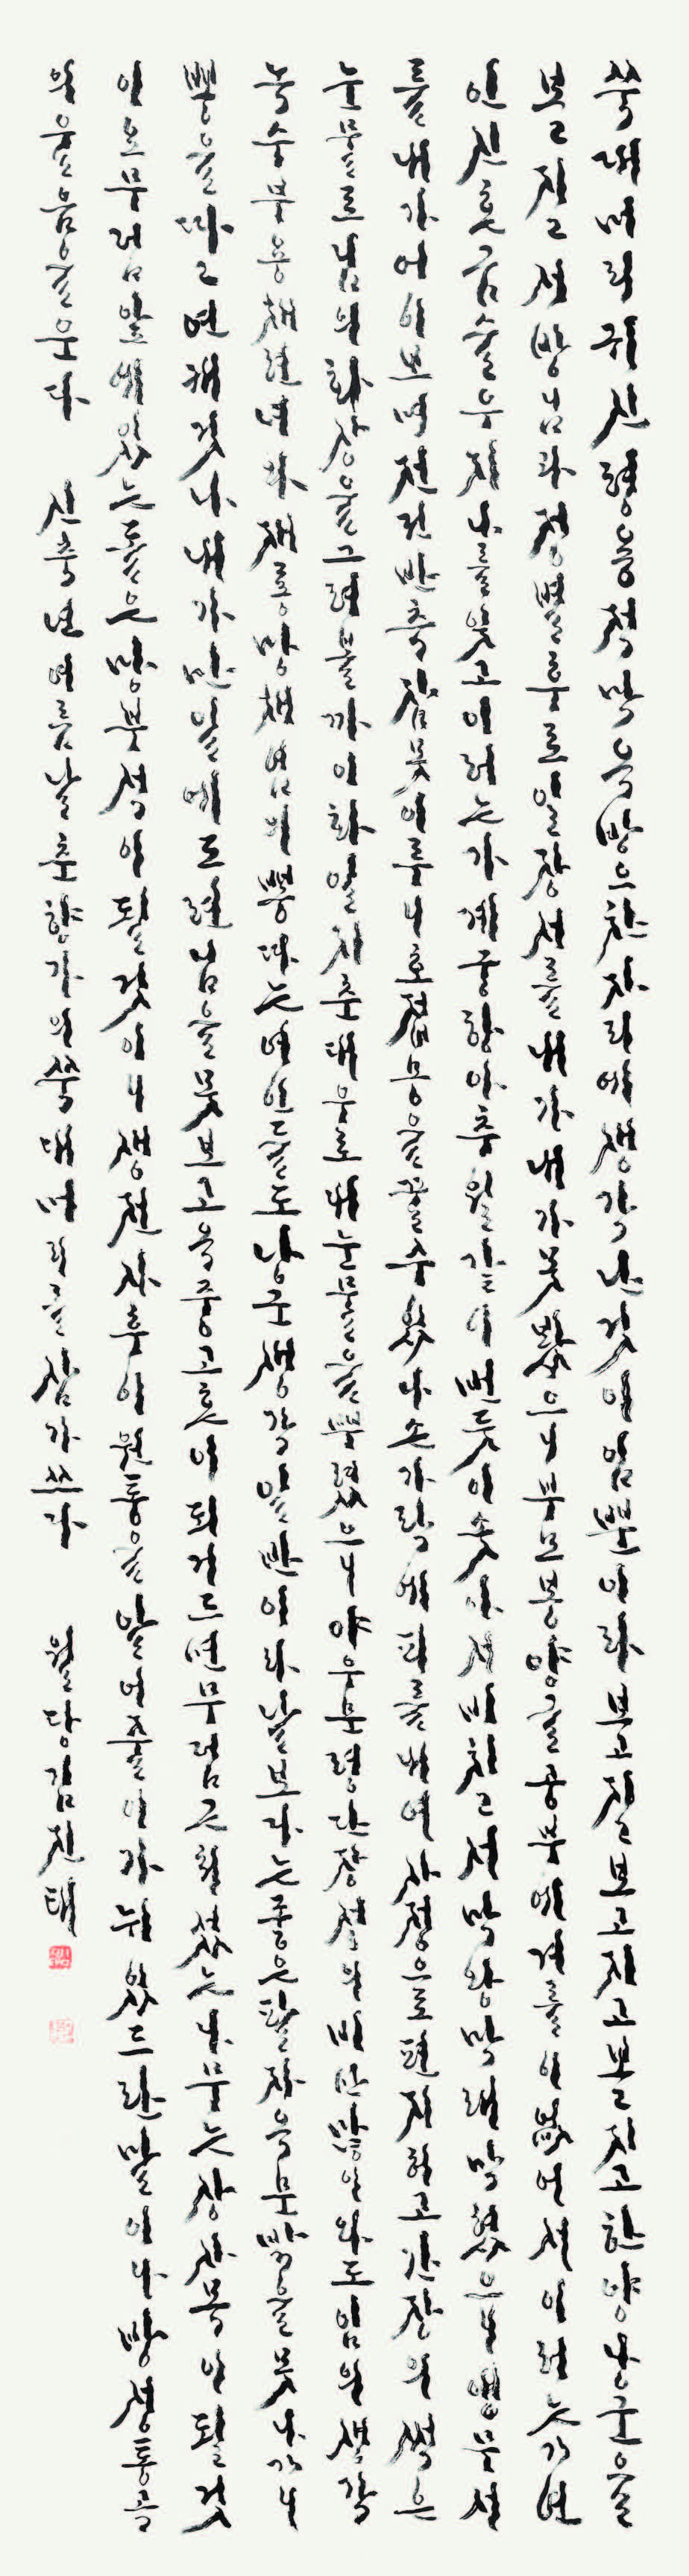 쑥대머리 귀신형용 적막옥방으 찬자리에 생각난 것이 임뿐이라 보고지고 보고지고 보고지고 한양낭군을
보고지고 서방님과 정별후로 일장서를 내가 내가 못봤으니 부모봉양 글공부에 겨를이 없어서 이러는가 연
인신혼 금슬우지 나를 잊고 이러는가 계궁항아 추월같이 번듯이 솟아서 비치고져 막왕막래 막혔으니 앵무서
를 내가 어이보며 전전반측 잠못이루니 호접몽을 꿀수 있나 손가락에 피를내여 사정으로 편지허고 간장의 썩은
눈물로 님의 화상을 그려볼까 이화일지춘대우로 내 눈물을 뿌렸으니 야우문령단장성의 비만 많이 와도 임의 생각
녹수부용 채련녀와 제롱망채엽의 뽕따는 여인들도 낭군생각 일반이라 날보다는 좋은 팔자 옥문밖을 못나가니
뽕을 따고 연캐것나 내가 만일에 도련님을 못보고 옥중고혼이 되거드면 무덤근처 섰는 나무는 상사목이 될것
이요 무덤앞에 있는 돌은 망부석이 될것이니 생전사후 이 원통을 알어줄이가 뉘 있드란 말이냐 방성통곡
의 울음을 운다 신축년 여름날 춘향가의 쑥대머리를 삼가쓰다 월당 김진태